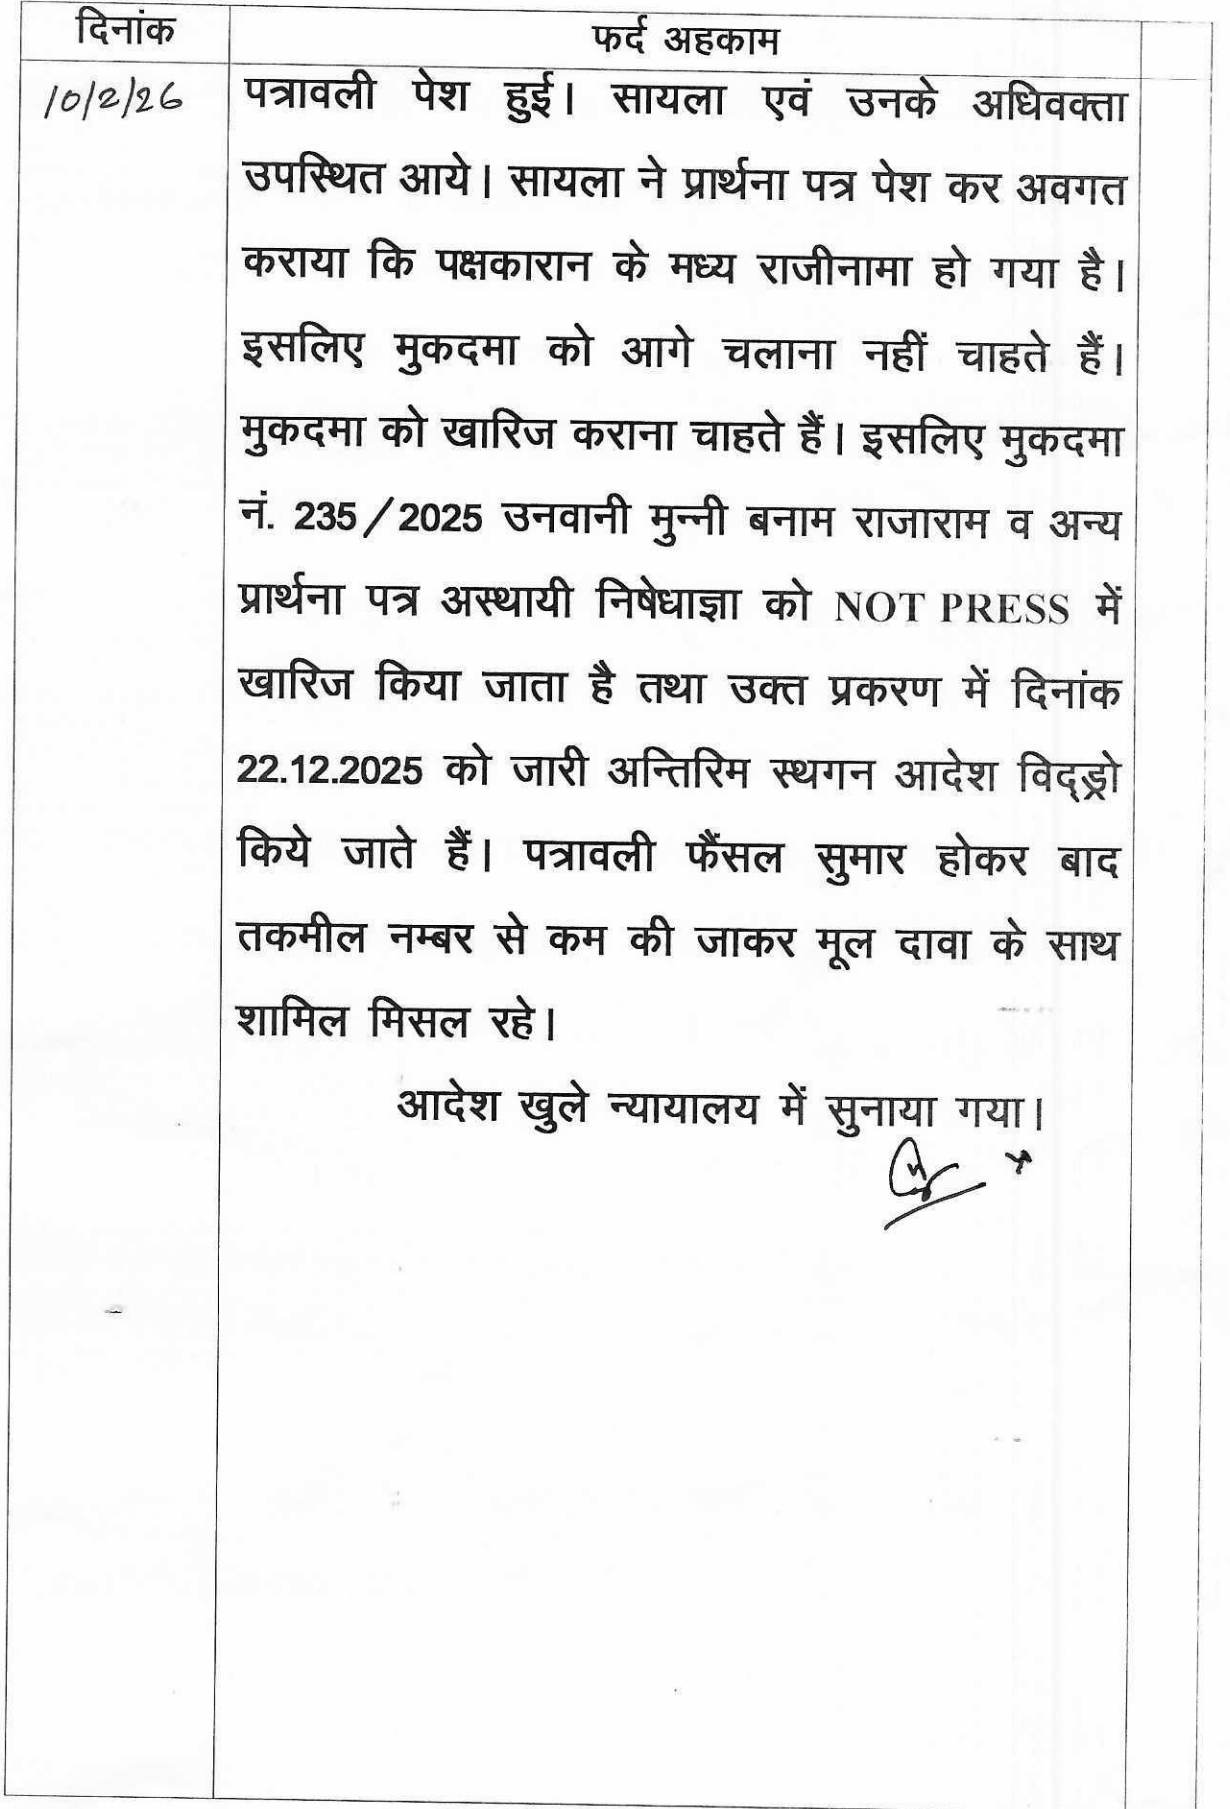 दिनांक
फर्द अहकाम
10/2/26
पत्रावली पेश हुई। सायला एवं उनके अधिवक्ता
उपस्थित आये। सायला ने प्रार्थना पत्र पेश कर अवगत
कराया कि पक्षकारान के मध्य राजीनामा हो गया है।
इसलिए मुकदमा को आगे चलाना नहीं चाहते हैं।
मुकदमा को खारिज कराना चाहते हैं। इसलिए मुकदमा
नं. 235/2025 उनवानी मुन्नी बनाम राजाराम व अन्य
प्रार्थना पत्र अस्थायी निषेधाज्ञा को NOT PRESS में
खारिज किया जाता है तथा उक्त प्रकरण में दिनांक
22.12.2025 को जारी अन्तिरिम स्थगन आदेश विद्ड्रो
किये जाते हैं। पत्रावली फैंसल सुमार होकर बाद
तकमील नम्बर से कम की जाकर मूल दावा के साथ
शामिल मिसल रहे।
आदेश खुले न्यायालय में सुनाया गया।